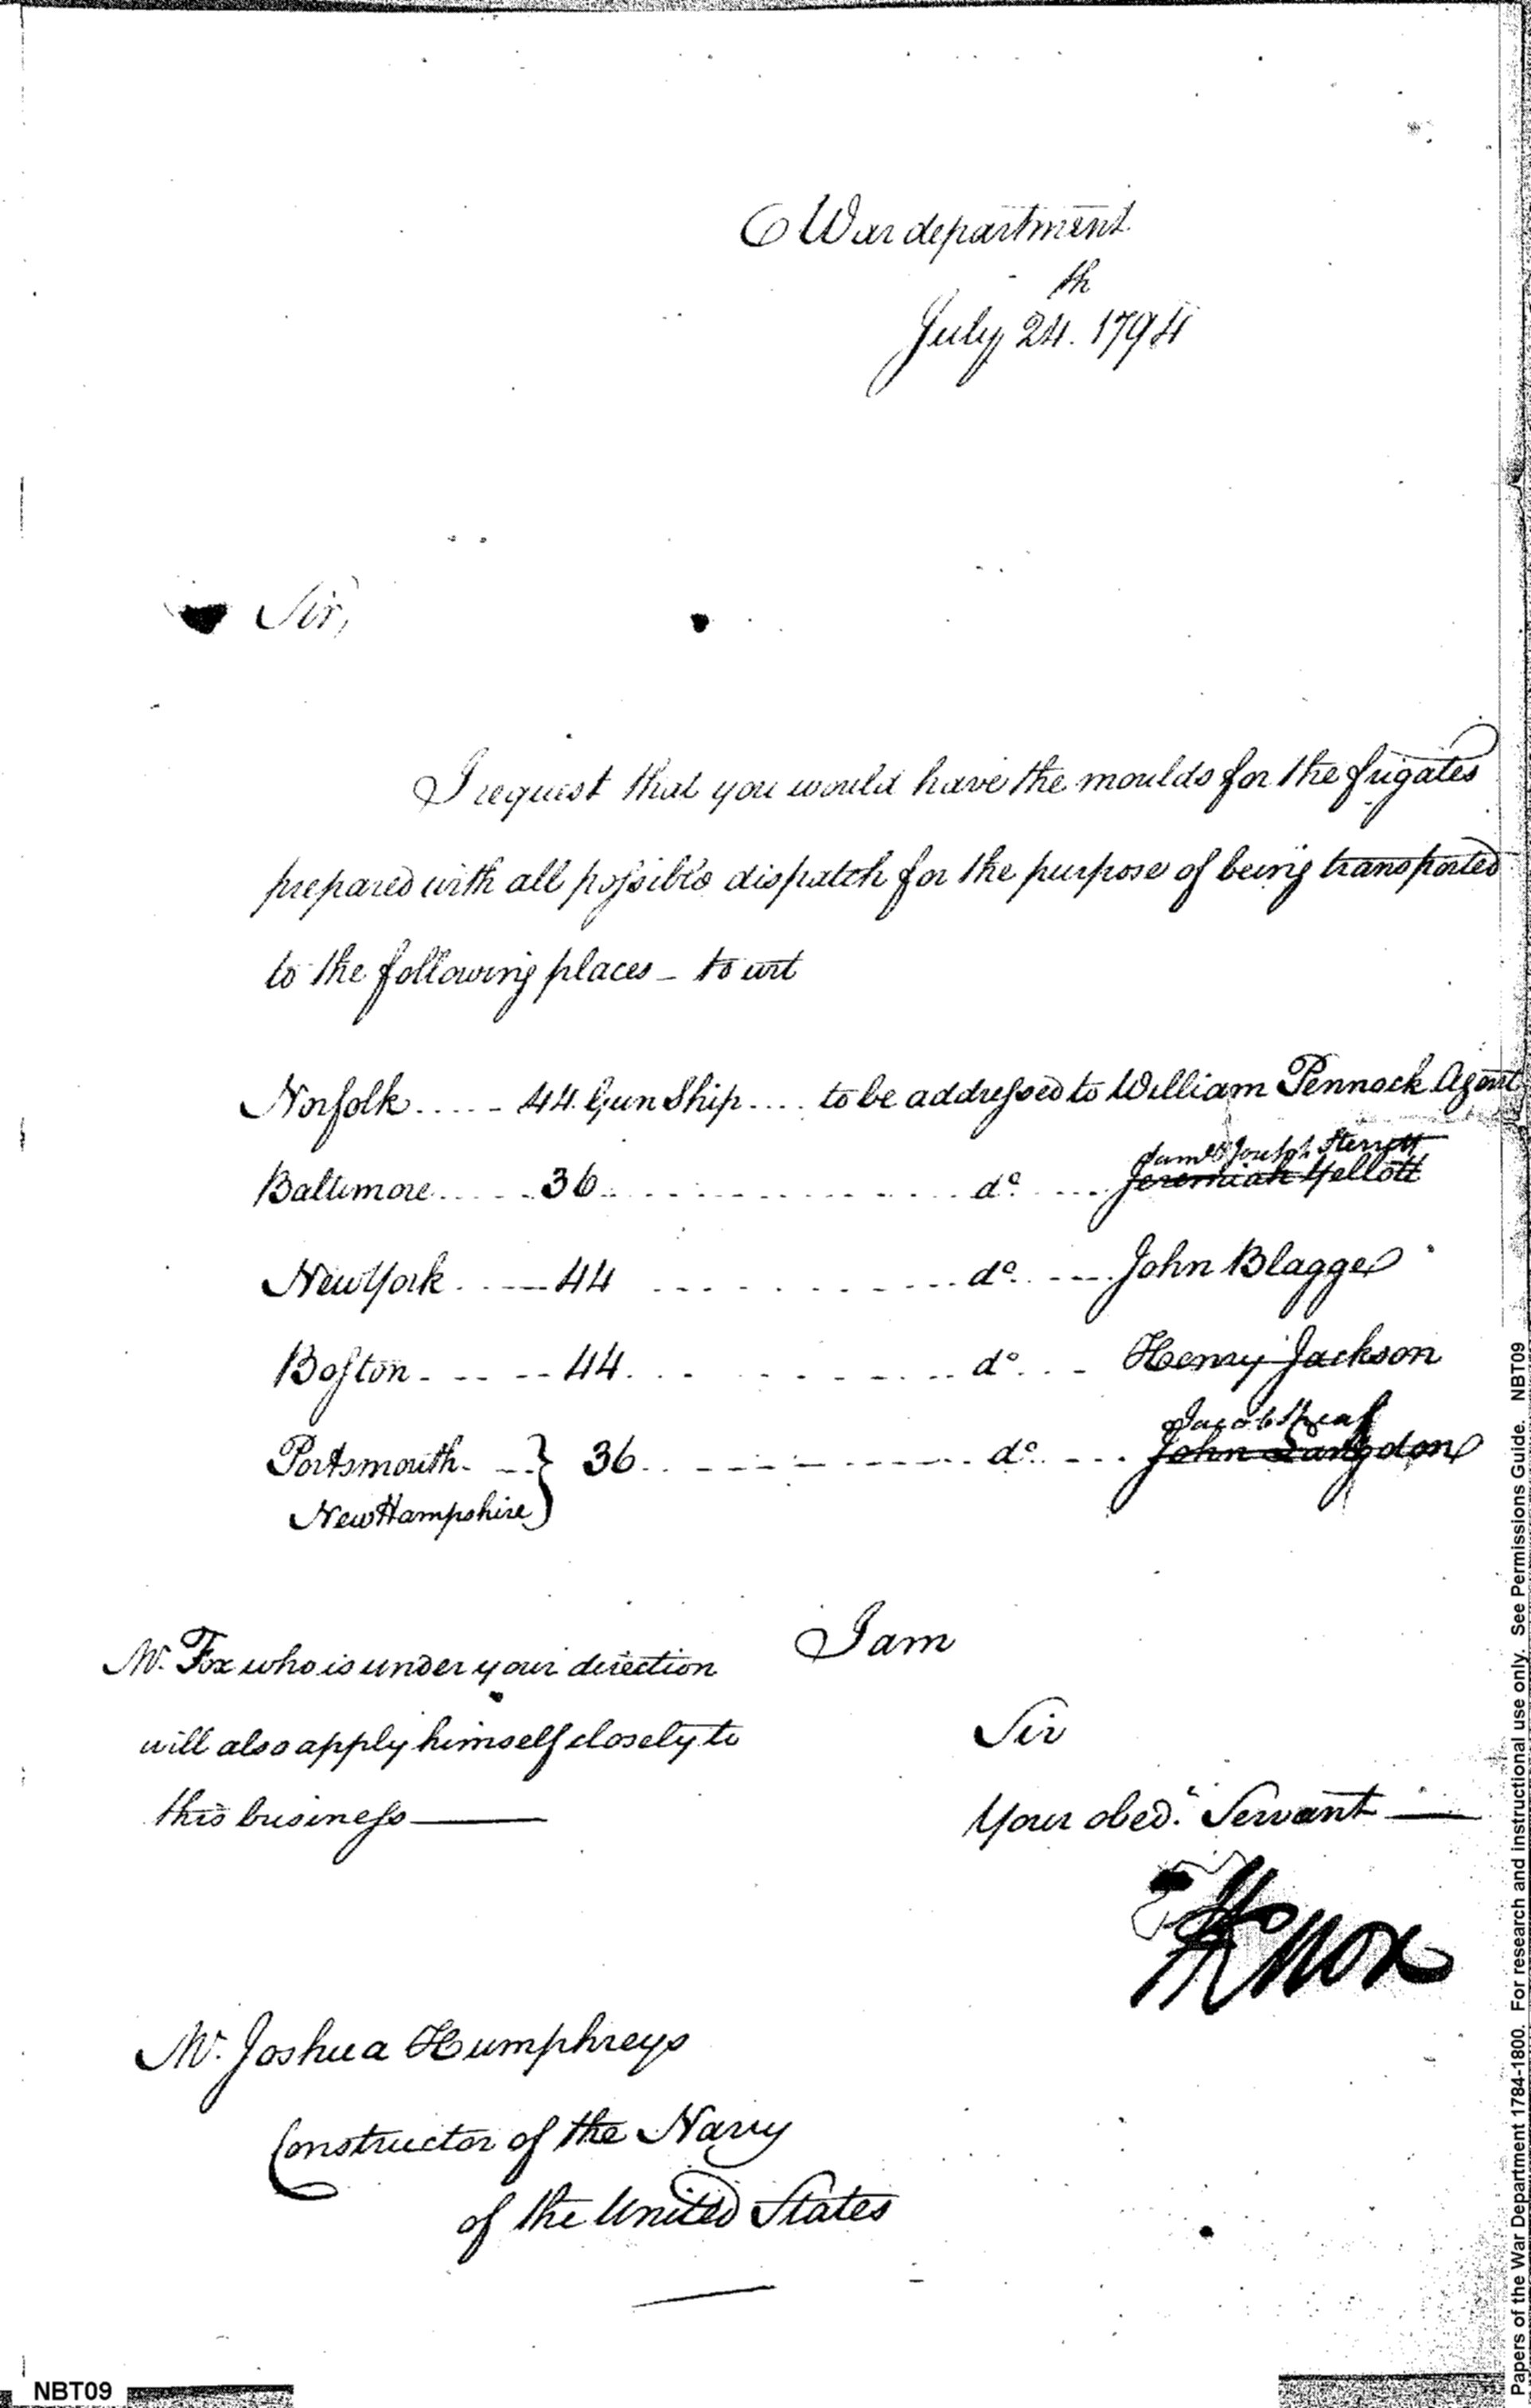 War department
July 24th. 1794
Sir,
I request that you would have the moulds for the frigates
prepared with all possible dispatch for the purpose of being transported
to the following places - to wit
Norfolk ..... 44 Gun Ship .... to be addressed to William Pennock Agent
James Joseph Sterrett
Baltimore ..... 36 ..... do .... Jeremiah Yellott
New York ..... 44 ..... do .... John Blagge
Boston ..... 44 ..... do ... Henry Jackson
Jacob Sheaf
Portsmouth } 36 ..... do .... John Langdon
New Hampshire
I am
Mr. Fox who is under your direction
will also apply himself closely to
this business
Sir
Your obedt. Servant
HKnox
Mr. Joshua Humphreys
Constructor of the Navy
of the United States
NBT09
Papers of the War Department 1784-1800. For research and instructional use only. See Permissions Guide. NBT09